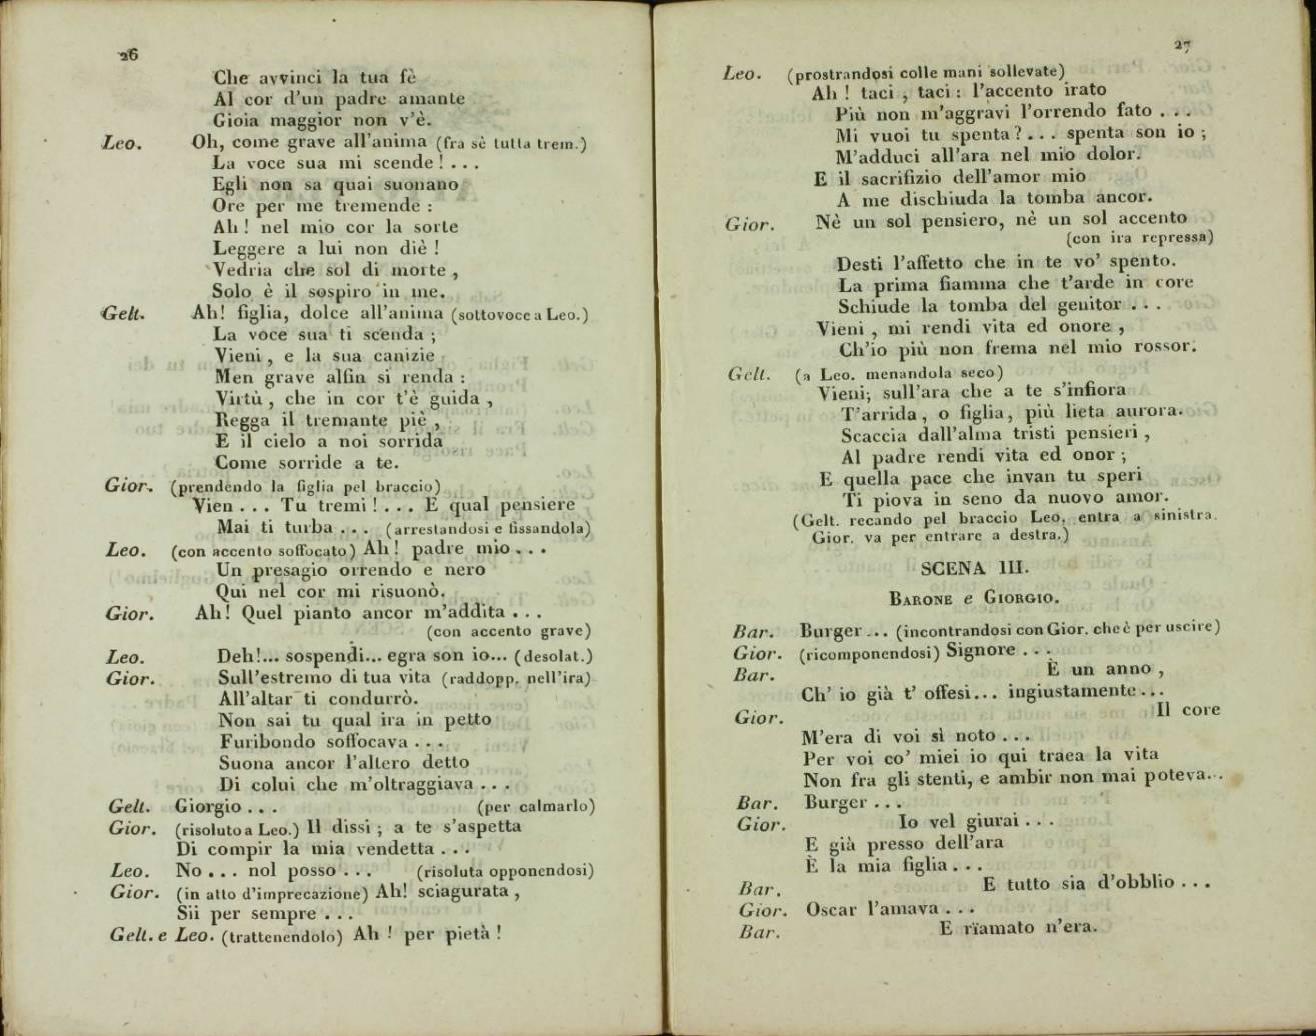 26
Che avvinci la tua fè
Al cor d'un padre amante
Gioia maggior non v'è.
Leo. Oh, come grave all'anima (fra sè tutta trem.)
La voce sua mi scende! . . .
Egli non sa quai suonano
Ore per me tremende :
Ah ! nel mio cor la sorte
Leggere a lui non diè !
Vedria che sol di morte ,
Solo è il sospiro in me.
Gelt. Ah! figlia, dolce all'anima (sottovoce a Leo.)
La voce sua ti scenda ;
Vieni , e la sua canizie
Men grave alfin si renda :
Virtù , che in cor t'è guida ,
Regga il tremante piè ,
E il cielo a noi sorrida
Come sorride a te.
Gior. (prendendo la figlia pel braccio)
Vien . . . Tu tremi ! . . . E qual pensiere
Mai ti turba . . . (arrestandosi e fissandola)
Leo. (con accento soffocato) Ah ! padre mio . . .
Un presagio orrendo e nero
Qui nel cor mi risuonò.
Gior. Ah! Quel pianto ancor m'addita . . .
(con accento grave)
Leo. Deh!... sospendi... egra son io... (desolat.)
Gior. Sull'estremo di tua vita (raddopp. nell'ira)
All'altar ti condurrò.
Non sai tu qual ira in petto
Furibondo soffocava . . .
Suona ancor l'altero detto
Di colui che m'oltraggiava . . .
Gelt. Giorgio . . . (per calmarlo)
Gior. (risoluto a Leo.) Il dissi ; a te s'aspetta
Di compir la mia vendetta . . .
Leo. No . . . nol posso . . . (risoluta opponendosi)
Gior. (in atto d'imprecazione) Ah! sciagurata ,
Sii per sempre . . .
Gelt. e Leo. (trattenendolo) Ah ! per pietà !
27
Leo. (prostrandosi colle mani sollevate)
Ah ! taci , taci : l'accento irato
Più non m'aggravi l'orrendo fato . . .
Mi vuoi tu spenta ? . . . spenta son io ;
M'adduci all'ara nel mio dolor.
E il sacrifizio dell'amor mio
A me dischiuda la tomba ancor.
Gior. Nè un sol pensiero, nè un sol accento
(con ira repressa)
Desti l'affetto che in te vo' spento.
La prima fiamma che t'arde in core
Schiude la tomba del genitor . . .
Vieni , mi rendi vita ed onore ,
Ch'io più non frema nel mio rossor.
Gelt. (a Leo. menandola seco)
Vieni; sull'ara che a te s'infiora
T'arrida , o figlia, più lieta aurora.
Scaccia dall'alma tristi pensieri ,
Al padre rendi vita ed onor ;
E quella pace che invan tu speri
Ti piova in seno da nuovo amor.
(Gelt. recando pel braccio Leo. entra a sinistra.
Gior. va per entrare a destra.)
SCENA III.
BARONE e GIORGIO.
Bar. Burger . . . (incontrandosi con Gior. che è per uscire)
Gior. (ricomponendosi) Signore . . .
Bar. È un anno ,
Ch' io già t' offesi... ingiustamente . . .
Gior. Il core
M'era di voi sì noto . . .
Per voi co' miei io qui traea la vita
Non fra gli stenti, e ambir non mai poteva...
Bar. Burger . . .
Gior. Io vel giurai . . .
E già presso dell'ara
È la mia figlia . . .
Bar. E tutto sia d'obblio . . .
Gior. Oscar l'amava . . .
Bar. E rïamato n'era.